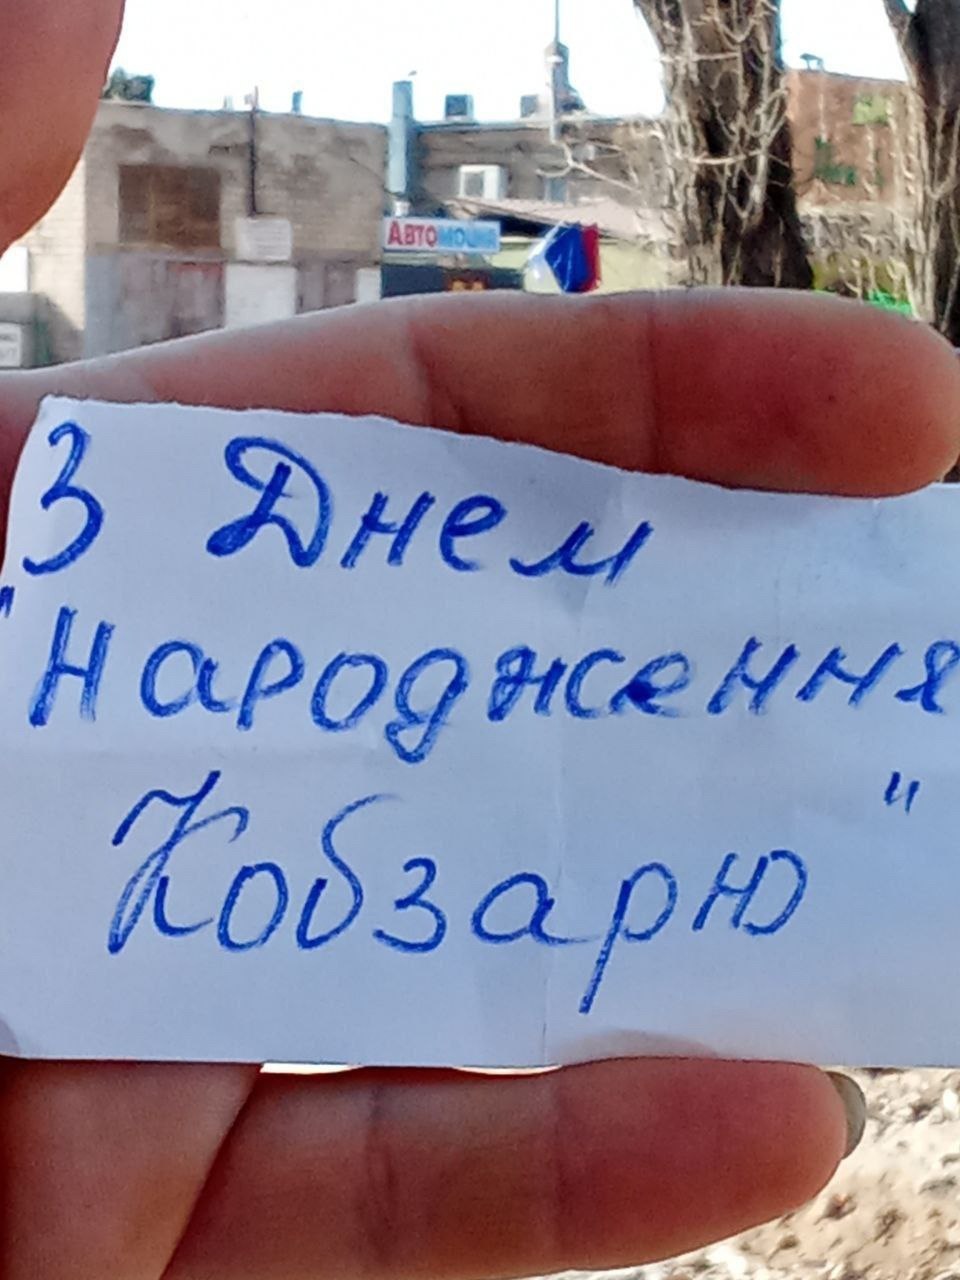 АВТОМОЙКА
З Днем
"Народження
Кобзарю"